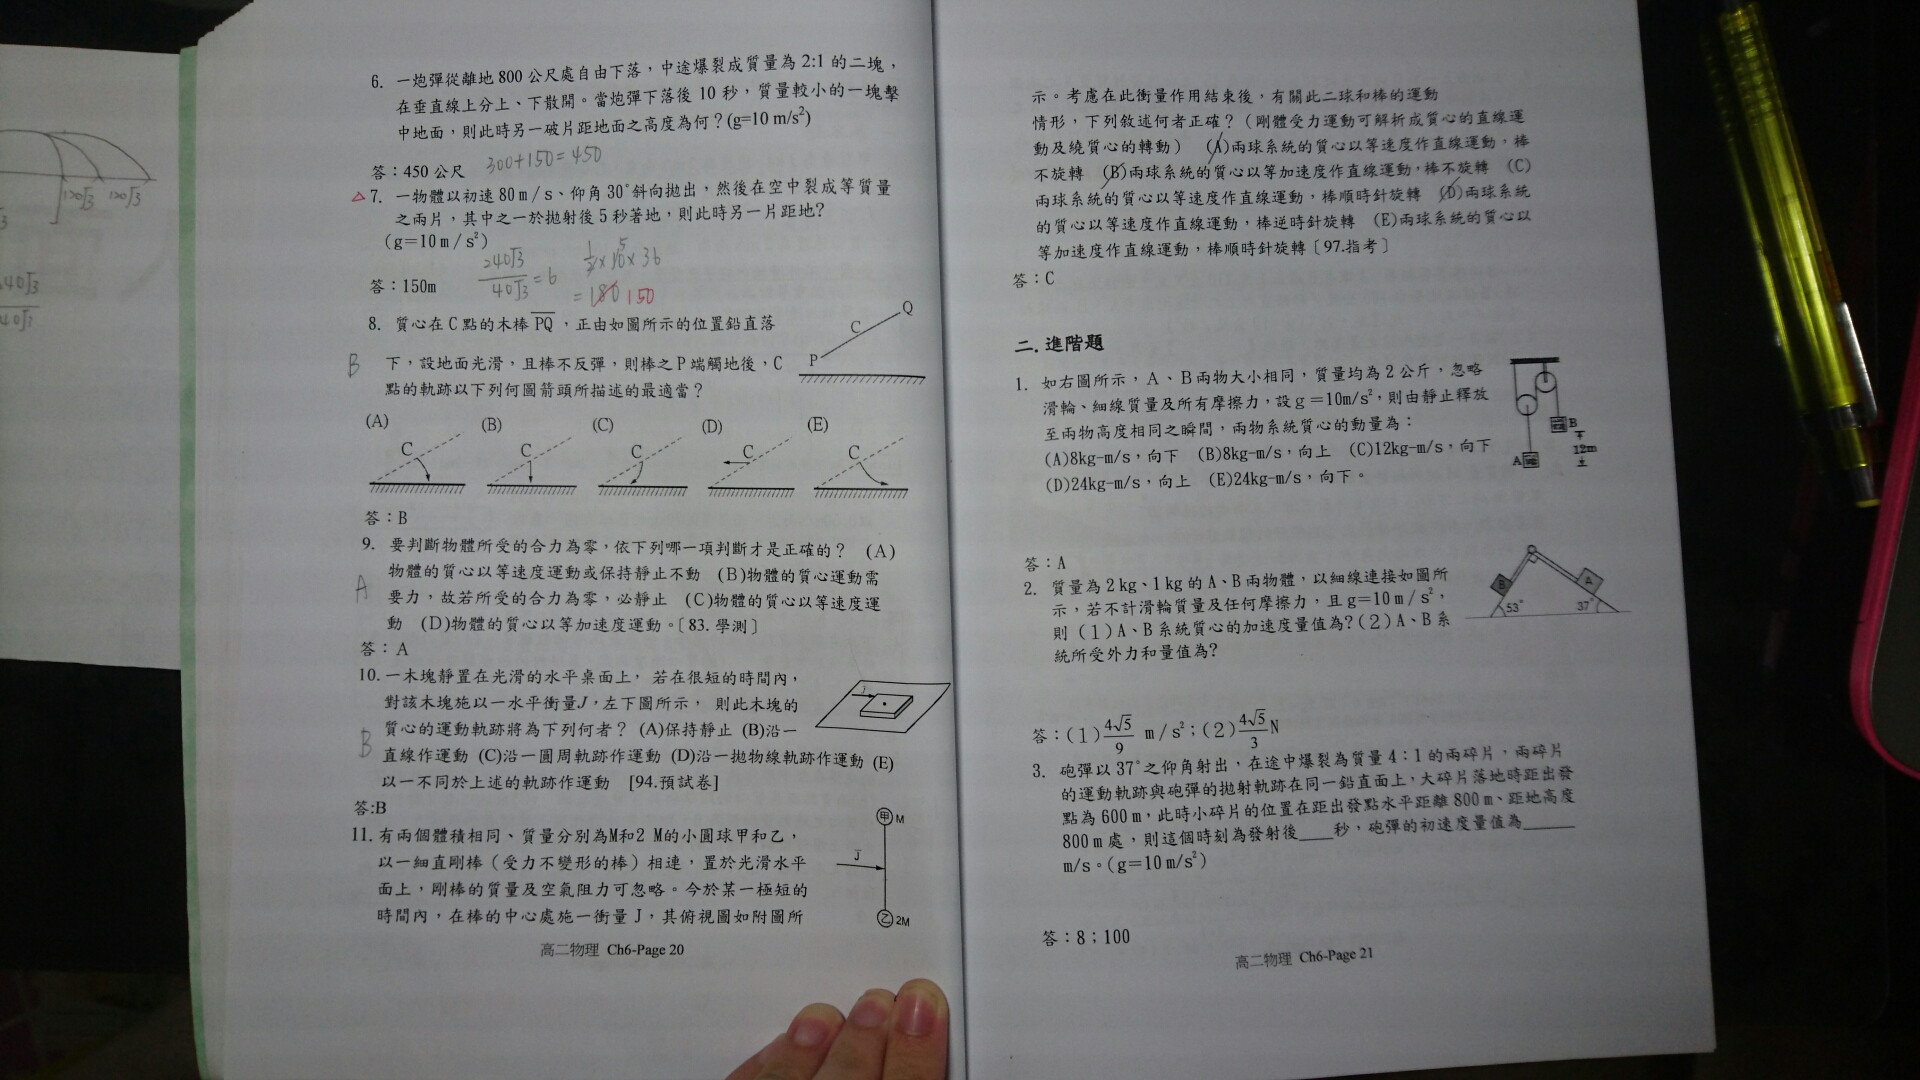 6. 一炮彈從離地 800 公尺處自由下落,中途爆裂成質量為 2:1 的二塊,
在垂直線上分上、下散開。當炮彈下落後 10 秒,質量較小的一塊擊
中地面,則此時另一破片距地面之高度為何?(g=10 m/s²)
答:450 公尺 300+150=450
△7. 一物體以初速 80 m/s、仰角 30°斜向拋出,然後在空中裂成等質量
之兩片,其中之一於拋射後 5 秒著地,則此時另一片距地?
(g=10 m/s²)
答:150m 240√3/40√3=6 ½×10×36
5
=180 150
8. 質心在 C 點的木棒 PQ,正由如圖所示的位置鉛直落
B 下,設地面光滑,且棒不反彈,則棒之 P 端觸地後,C
點的軌跡以下列何圖箭頭所描述的最適當?
P C Q
(A) (B) (C) (D) (E)
C C C C C
答:B
9. 要判斷物體所受的合力為零,依下列哪一項判斷才是正確的? (A)
物體的質心以等速度運動或保持靜止不動 (B)物體的質心運動需
A 要力,故若所受的合力為零,必靜止 (C)物體的質心以等速度運
動 (D)物體的質心以等加速度運動。〔83.學測〕
答:A
10. 一木塊靜置在光滑的水平桌面上, 若在很短的時間內,
對該木塊施以一水平衝量J,左下圖所示, 則此木塊的
質心的運動軌跡將為下列何者? (A)保持靜止 (B)沿一
B 直線作運動 (C)沿一圓周軌跡作運動 (D)沿一拋物線軌跡作運動 (E)
以一不同於上述的軌跡作運動 [94.預試卷]
答:B
11. 有兩個體積相同、質量分別為M和2 M的小圓球甲和乙,
以一細直剛棒(受力不變形的棒)相連,置於光滑水平
面上,剛棒的質量及空氣阻力可忽略。今於某一極短的
時間內,在棒的中心處施一衝量 J,其俯視圖如附圖所
甲 M
J
乙 2M
高二物理 Ch6-Page 20
120√3 120√3
3
40√3
示。考慮在此衝量作用結束後,有關此二球和棒的運動
情形,下列敘述何者正確?(剛體受力運動可解析成質心的直線運
動及繞質心的轉動) (A)兩球系統的質心以等速度作直線運動,棒
不旋轉 (B)兩球系統的質心以等加速度作直線運動,棒不旋轉 (C)
兩球系統的質心以等速度作直線運動,棒順時針旋轉 (D)兩球系統
的質心以等速度作直線運動,棒逆時針旋轉 (E)兩球系統的質心以
等加速度作直線運動,棒順時針旋轉〔97.指考〕
答:C
二. 進階題
1. 如右圖所示,A、B兩物大小相同,質量均為 2 公斤,忽略
滑輪、細線質量及所有摩擦力,設g=10m/s²,則由靜止釋放
至兩物高度相同之瞬間,兩物系統質心的動量為:
(A)8kg-m/s,向下 (B)8kg-m/s,向上 (C)12kg-m/s,向下
(D)24kg-m/s,向上 (E)24kg-m/s,向下。
B
12m
A
答:A
2. 質量為 2 kg、1 kg 的 A、B 兩物體,以細線連接如圖所
示,若不計滑輪質量及任何摩擦力,且 g=10 m/s²,
則 (1)A、B 系統質心的加速度量值為?(2)A、B 系
統所受外力和量值為?
B A
53° 37°
答:(1)4√5/9 m/s²;(2)4√5/3 N
3. 砲彈以 37°之仰角射出,在途中爆裂為質量 4:1 的兩碎片,兩碎片
的運動軌跡與砲彈的拋射軌跡在同一鉛直面上,大碎片落地時距出發
點為 600 m,此時小碎片的位置在距出發點水平距離 800 m、距地高度
800 m 處,則這個時刻為發射後____秒,砲彈的初速度量值為______
m/s。(g=10 m/s²)
答:8;100
高二物理 Ch6-Page 21